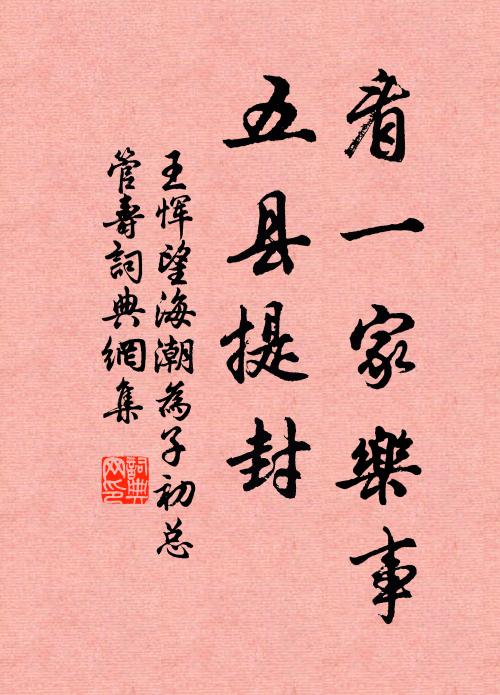 看一家樂事
五县提封
王恽望海潮為子初总
管壽詞典網集
詞典网印